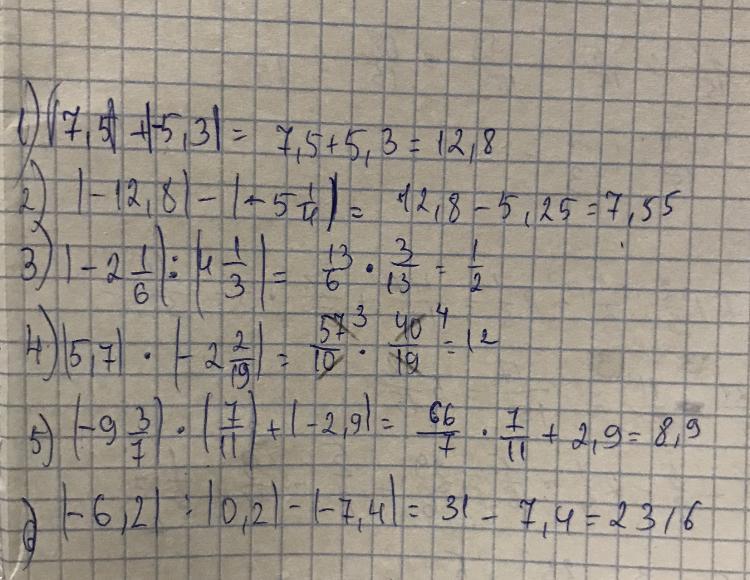 1) |7,5| + |-5,3| = 7,5 + 5,3 = 12,8
2) |-12,8| - |+5 1/4| = 12,8 - 5,25 = 7,55
3) |-2 1/6| : |4 1/3| = 13/6 · 3/13 = 1/2
4) |5,7| · |-2 2/19| = 57/10 3 · 40/19 4 = 12
5) |-9 3/7| · |7/11| + |-2,9| = 66/7 · 7/11 + 2,9 = 8,9
6) |-6,2| : |0,2| - |-7,4| = 31 - 7,4 = 23,6